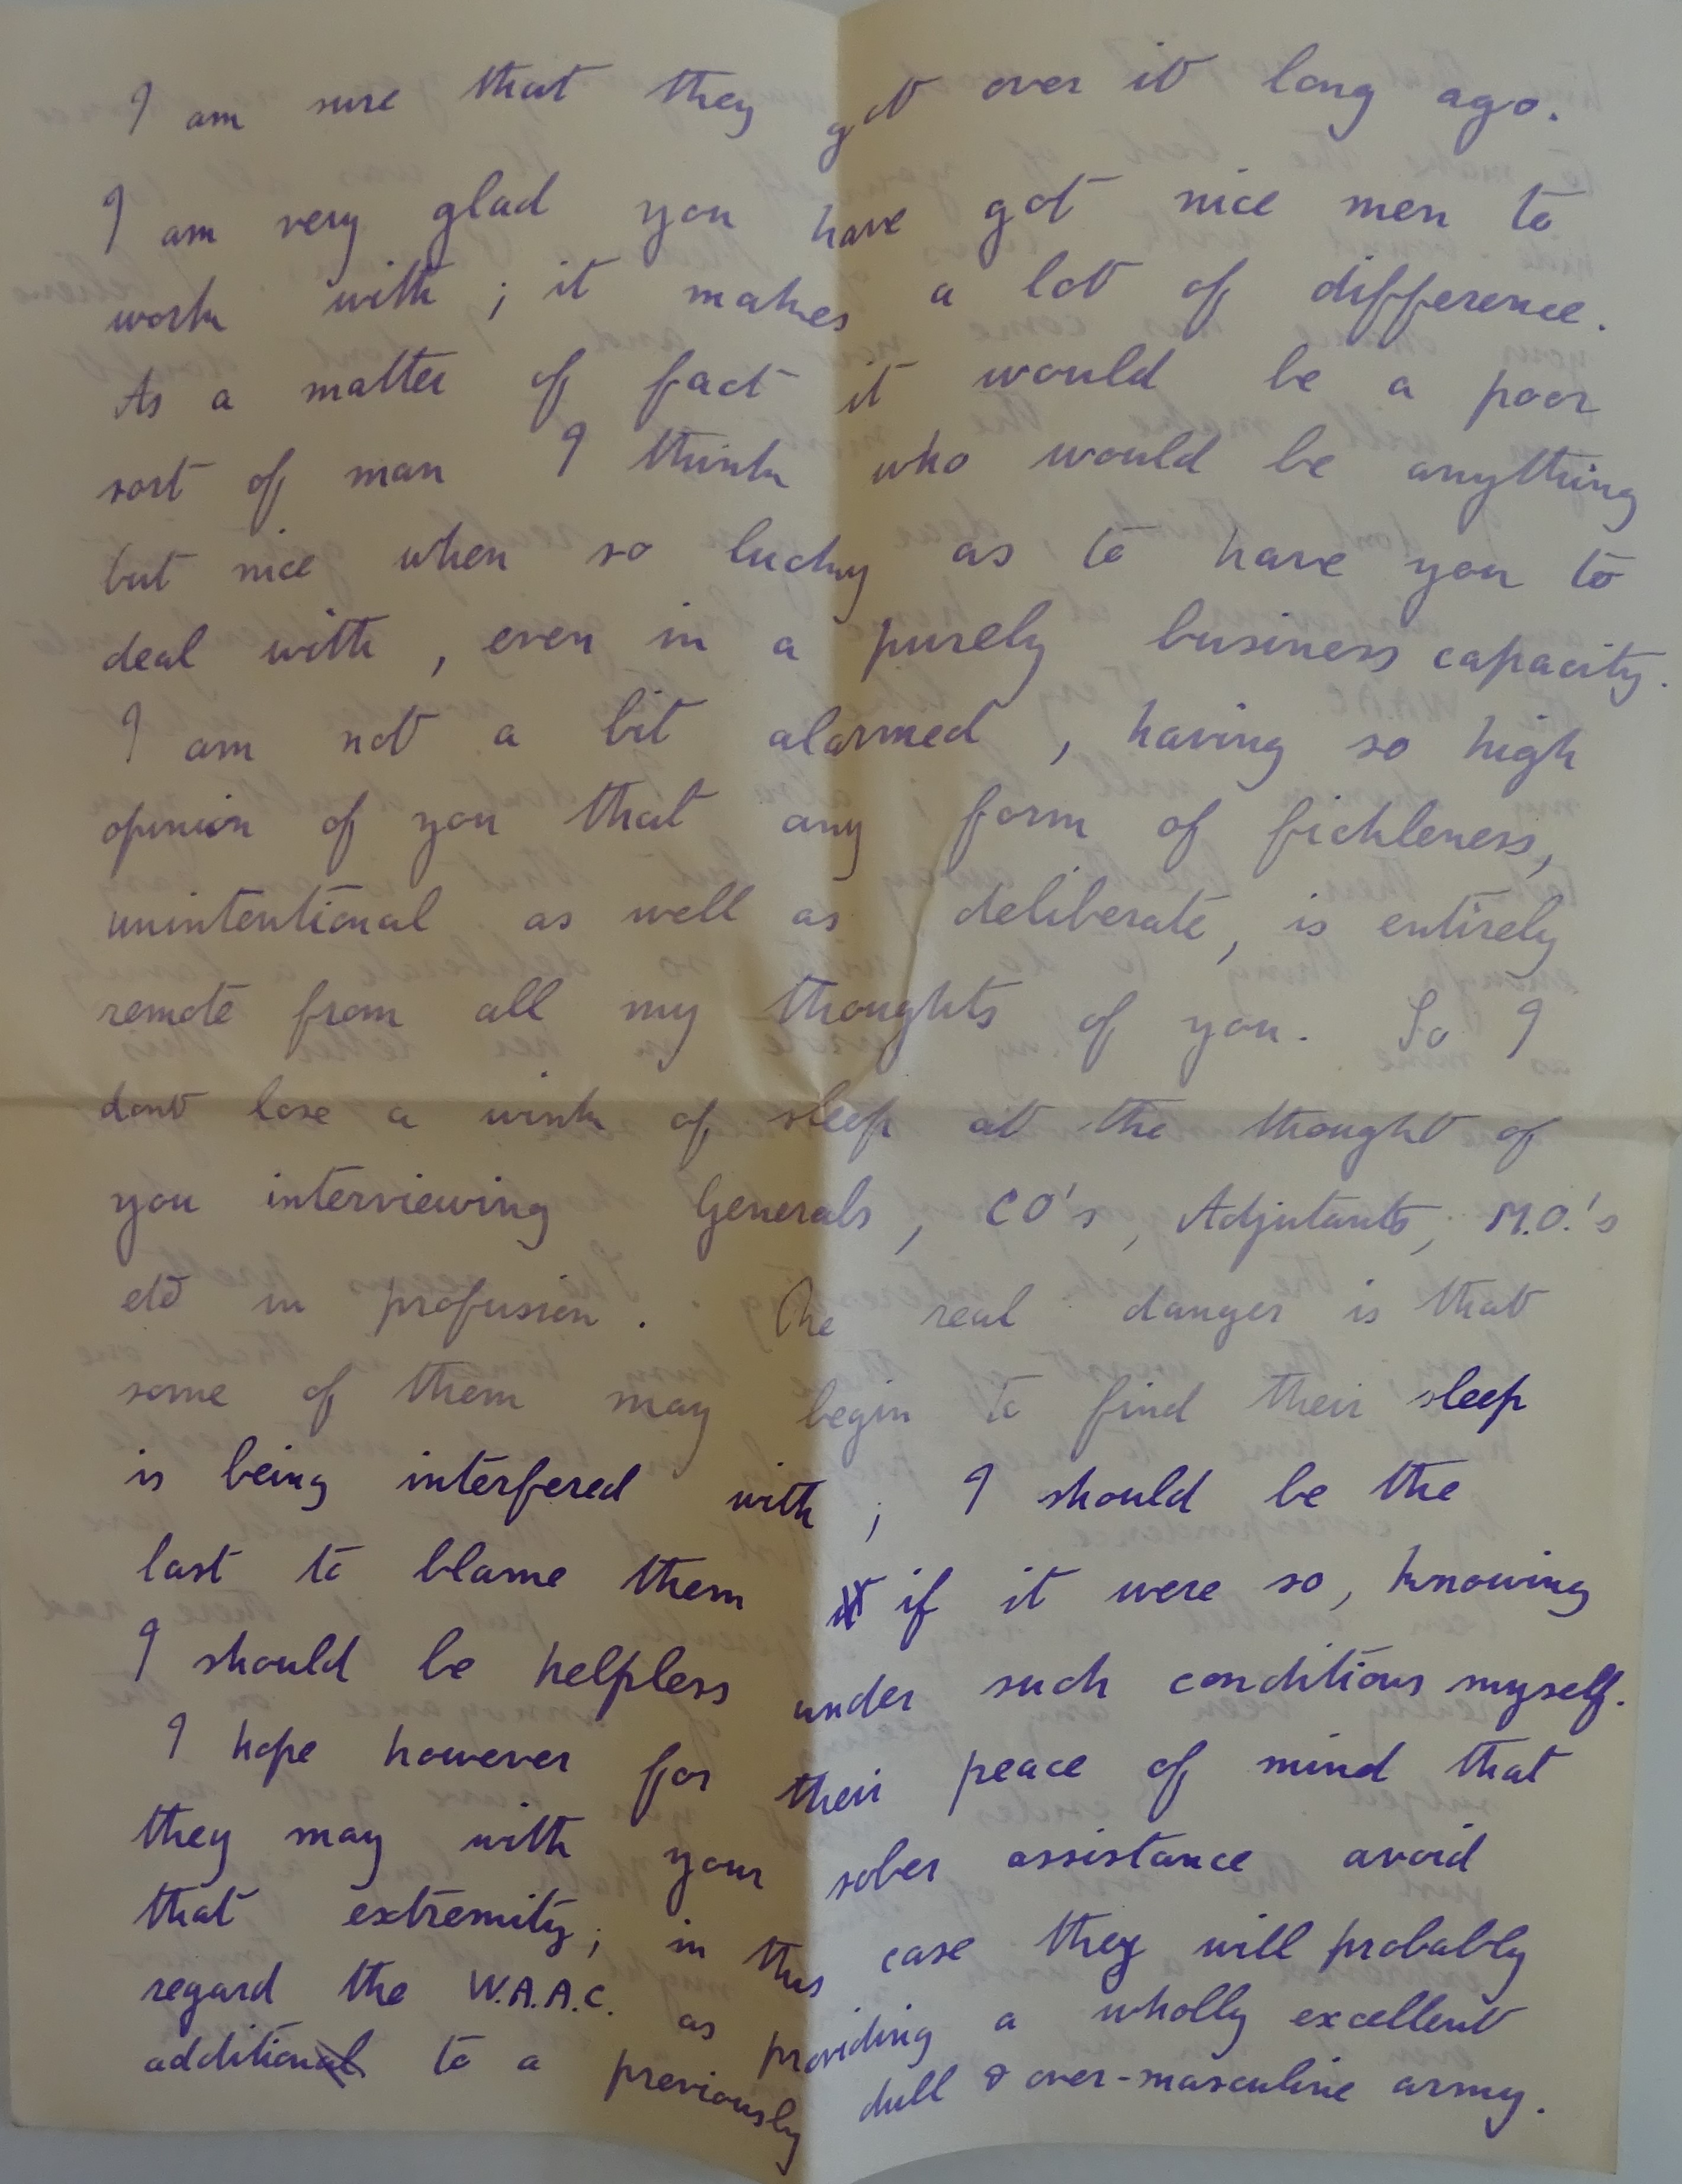 I am sure that they got over it long ago.
I am very glad you have got nice men to
work with ; it makes a lot of difference.
As a matter of fact it would be a poor
sort of man I think who would be anything
but nice when so lucky as to have you to
deal with , even in a purely business capacity.
I am not a bit alarmed , having so high
opinion of you that any form of fickleness,
unintentional as well as deliberate, is entirely
remote from all my thoughts of you. So I
dont lose a wink of sleep at the thought of
you interviewing Generals, CO's, Adjutants, M.O.'s
etc in profusion. The real danger is that
some of them may begin to find their sleep
is being interfered with ; I should be the
last to blame them it if it were so, knowing
I should be helpless under such conditions myself.
I hope however for their peace of mind that
they may with your sober assistance avoid
that extremity; in this case they will probably
regard the W.A.A.C. as providing a wholly excellent
additional to a previously dull & over-masculine army.